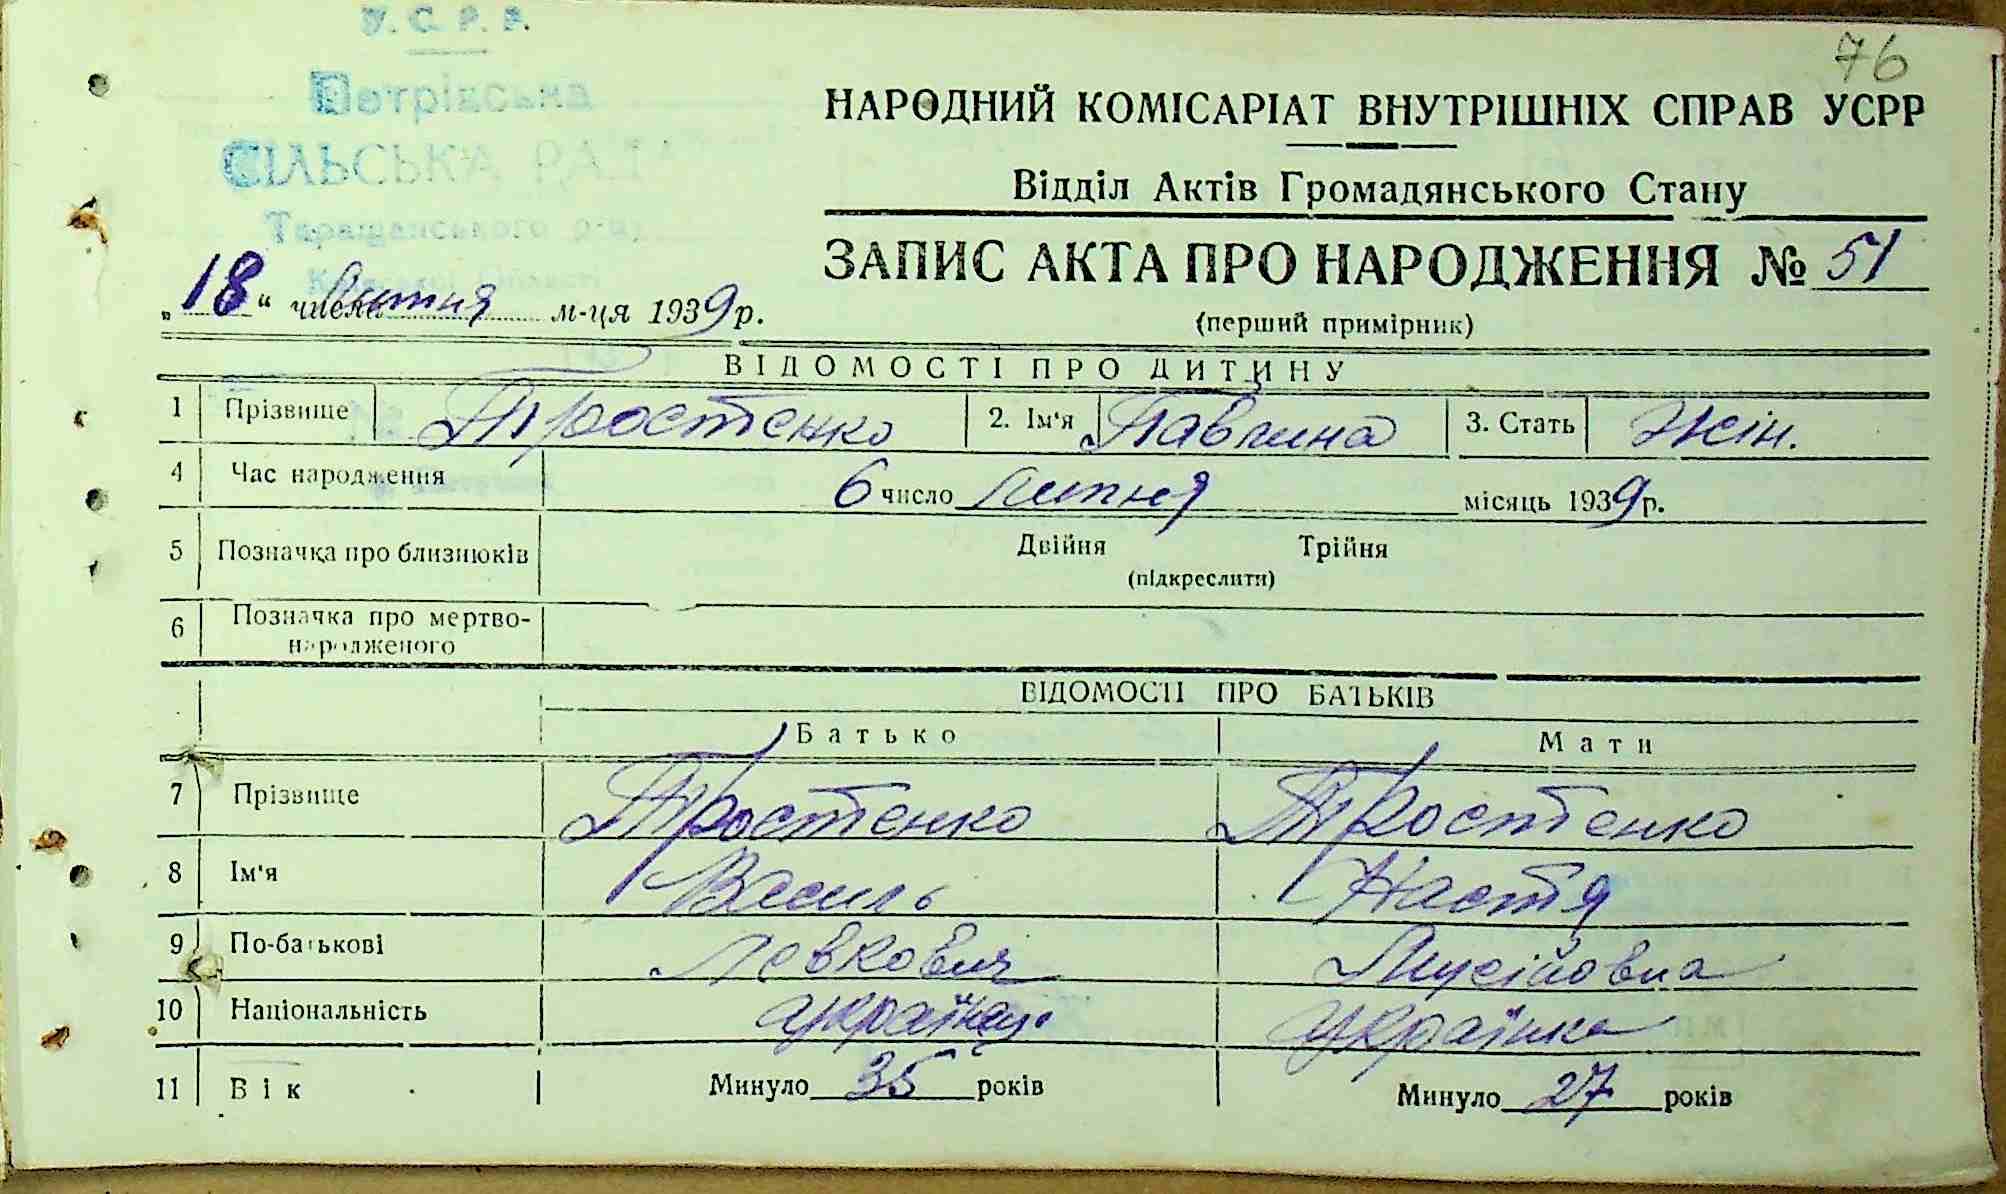 76
У. С. Р. Р.
Петрівська
СІЛЬСЬКА РАДА
Таращанського р-ну
Київської Області
НАРОДНИЙ КОМІСАРІАТ ВНУТРІШНІХ СПРАВ УСРР
Відділ Актів Громадянського Стану
ЗАПИС АКТА ПРО НАРОДЖЕННЯ № 51
„18“ числа м-ця 1939 р.
(перший примірник)
ВІДОМОСТІ ПРО ДИТИНУ
1 Прізвище Тростенко 2. Ім'я Павлина 3. Стать Жін.
4 Час народження 6 число липня місяць 1939 р.
5 Позначка про близнюків Двійня Трійня
(підкреслити)
6 Позначка про мертво-
народженого
ВІДОМОСТІ ПРО БАТЬКІВ
Батько Мати
7 Прізвище Тростенко Тростенко
8 Ім'я Василь Настя
9 По-батькові Левкович Мусійовна
10 Національність українец. українка
11 Вік Минуло 35 років Минуло 27 років